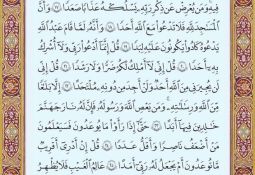 فِيهِ وَمَن يُعْرِضْ عَن ذِكْرِ رَبِّهِۦ يَسْلُكْهُ عَذَابًا صَعَدًا ١٧ وَأَنَّ
ٱلْمَسَٰجِدَ لِلَّهِ فَلَا تَدْعُوا۟ مَعَ ٱللَّهِ أَحَدًا ١٨ وَأَنَّهُۥ لَمَّا قَامَ عَبْدُ ٱللَّهِ
يَدْعُوهُ كَادُوا۟ يَكُونُونَ عَلَيْهِ لِبَدًا ١٩ قُلْ إِنَّمَآ أَدْعُوا۟ رَبِّى وَلَآ أُشْرِكُ
بِهِۦٓ أَحَدًا ٢٠ قُلْ إِنِّى لَآ أَمْلِكُ لَكُمْ ضَرًّا وَلَا رَشَدًا ٢١ قُلْ إِنِّى
لَن يُجِيرَنِى مِنَ ٱللَّهِ أَحَدٌ وَلَنْ أَجِدَ مِن دُونِهِۦ مُلْتَحَدًا ٢٢ إِلَّا بَلَٰغًا
مِّنَ ٱللَّهِ وَرِسَٰلَٰتِهِۦ وَمَن يَعْصِ ٱللَّهَ وَرَسُولَهُۥ فَإِنَّ لَهُۥ نَارَ جَهَنَّمَ
خَٰلِدِينَ فِيهَآ أَبَدًا ٢٣ حَتَّىٰٓ إِذَا رَأَوْا۟ مَا يُوعَدُونَ فَسَيَعْلَمُونَ
مَنْ أَضْعَفُ نَاصِرًا وَأَقَلُّ عَدَدًا ٢٤ قُلْ إِنْ أَدْرِىٓ أَقَرِيبٌ
مَّا تُوعَدُونَ أَمْ يَجْعَلُ لَهُۥ رَبِّىٓ أَمَدًا ٢٥ عَٰلِمُ ٱلْغَيْبِ فَلَا يُظْهِرُ